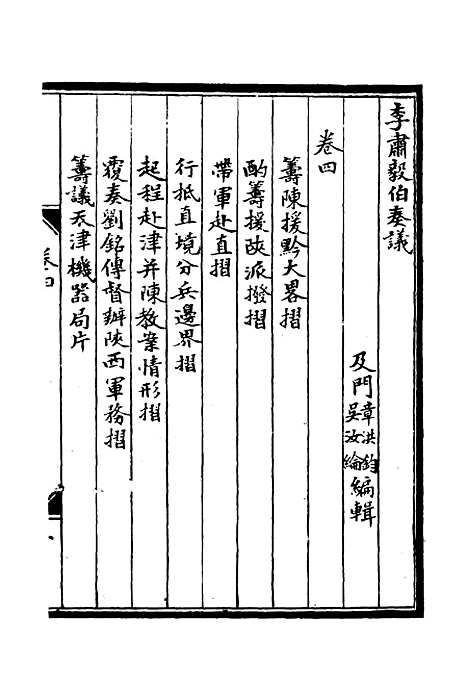 李肅毅伯奏議
及門章洪鈞吳汝綸編輯
卷四
籌陳援黔大畧摺
酌籌援陝派撥摺
帶軍赴直摺
行抵直境分兵邊界摺
起程赴津并陳教案情形摺
覆奏劉銘傳督辦陝西軍務摺
籌議天津機器局片
卷四
一